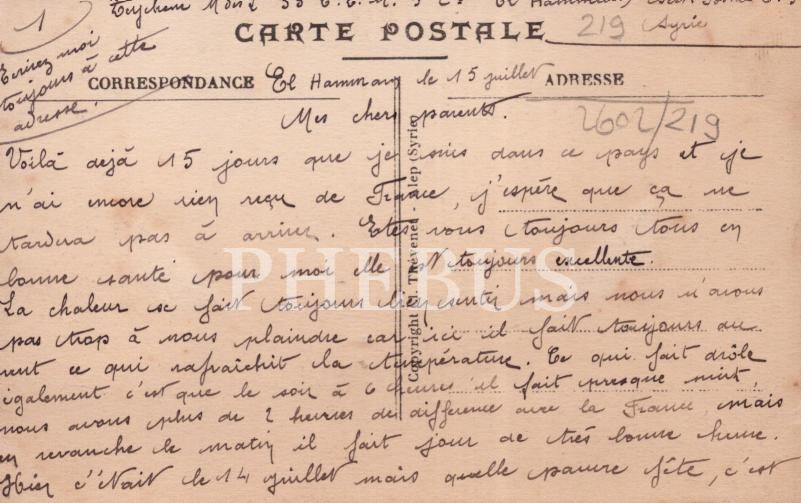 1
219
Syrie
CARTE POSTALE
Ecrivez moi
toujours à cette
adresse.
CORRESPONDANCE
El Hammam le 15 juillet
ADRESSE
Mes chers parents.
2602/219
Voilà dejà 15 jours que je suis dans ce pays et je
n'ai encore rien reçu de France, j'espére que ça ne
tardera pas à arriver. Etes vous toujours tous en
bonne santé pour moi elle est toujours excellente.
La chaleur se fait toujours bien sentir mais nous n'avons
pas trop à nous plaindre car ici il fait toujours du
vent ce qui rafraîchit la température. Ce qui fait drôle
également c'est que le soir à 6 heures il fait presque nuit,
nous avons plus de 2 heures de difference avec la France, mais
en revanche le matin il fait jour de trés bonne heure.
Hier c'était le 14 juillet mais quelle pauvre fête, c'est
Copyright M. Thévenet - Alep (Syrie)
PHEBUS